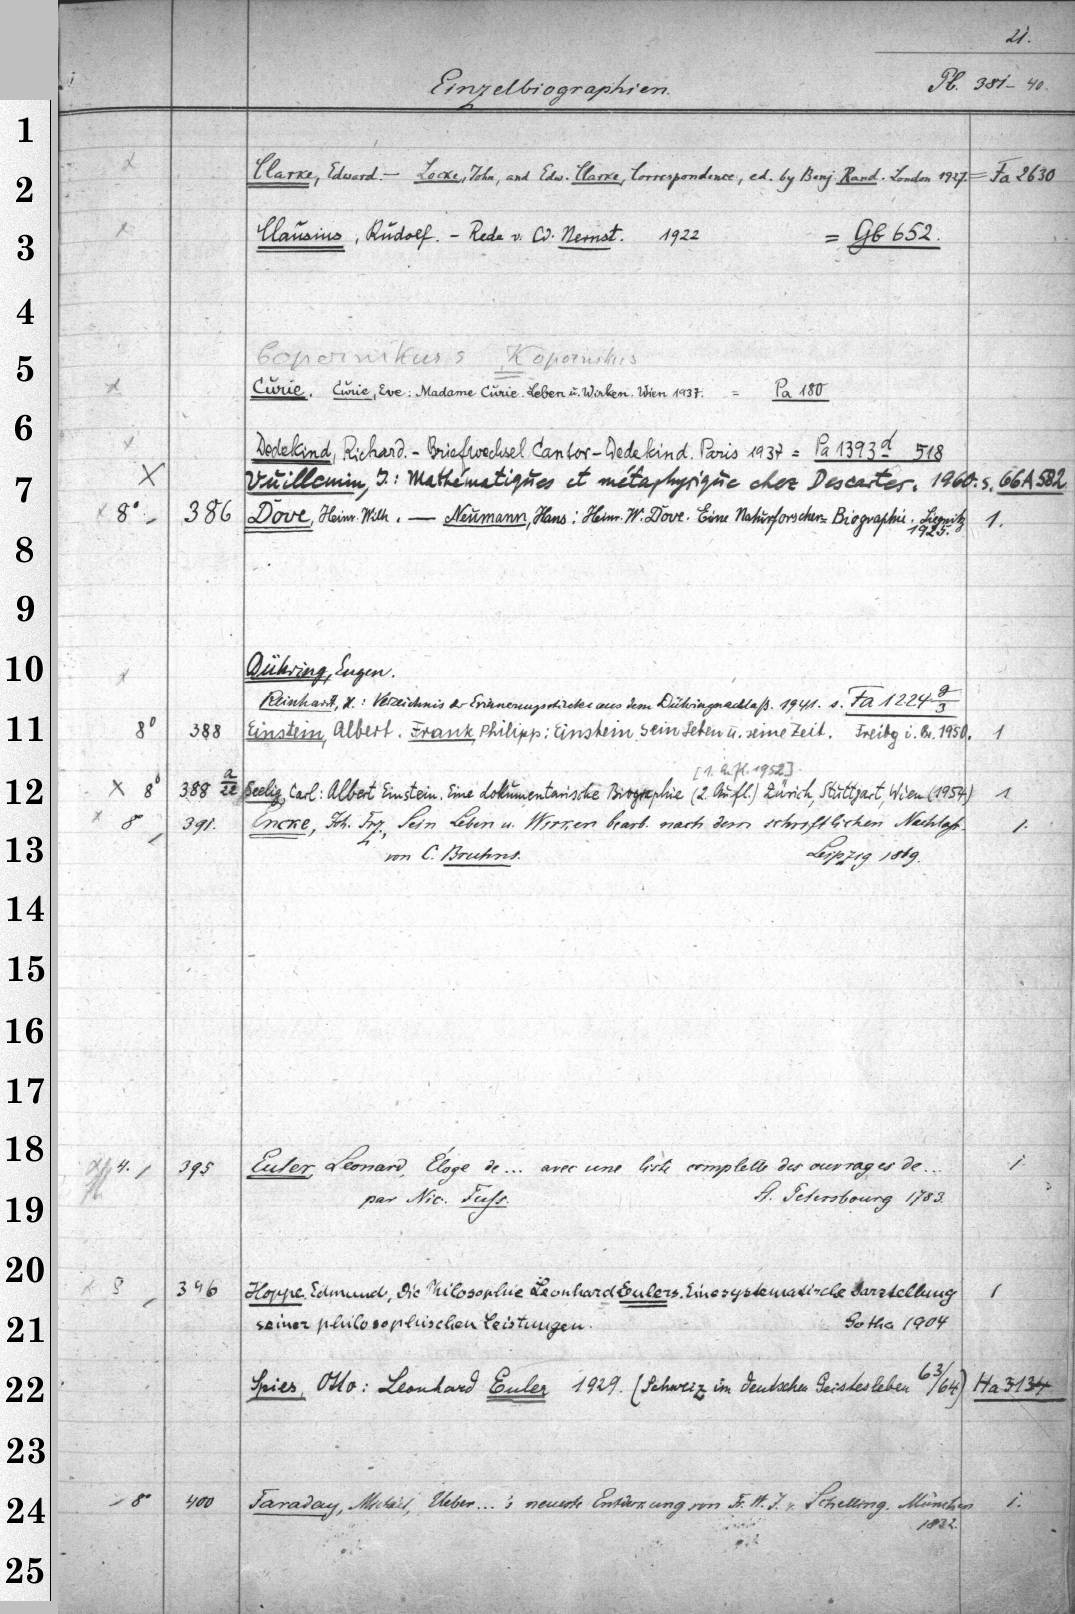 21.
Einzelbiographien. Pb. 381-40.
1
2 Clarke, Edward. — Locke, John, and Edw. Clarke, Correspondence, ed. by Benj. Rand. London 1927. = Fa 2630
3 Clausius, Rudolf. - Rede v. W. Nernst. 1922 = Gb 652.
4
Copernikus s Kopernikus
5 Curie. Curie, Eve: Madame Curie. Leben u. Wirken. Wien 1937. = Pa 180
6 Dedekind, Richard. - Briefwechsel Cantor-Dedekind. Paris 1937 = Pa 1393 d 518
7 Vuillemin, J.: Mathématiques et métaphysique chez Descartes. 1960. s. 66A582
8° 386 Dove, Heinr. Wilh. — Neumann, Hans: Heinr. W. Dove. Eine Naturforscher-Biographie. Liegnitz 1.
1925.
8
9
10 Dühring, Eugen.
Reinhardt, H.: Verzeichnis der Erinnerungsstücke aus dem Dühringnachlaß. 1941. s. Fa 1224 g/3
11 8° 388 Einstein, Albert. Frank Philipp: Einstein sein Leben u. seine Zeit. Freibg i. Br. 1950. 1
[1. Aufl. 1952]
12 8° 388 a/2e Seelig, Carl: Albert Einstein. Eine dokumentarische Biographie (2. Aufl.) Zürich, Stuttgart, Wien (1954) 1
8° 391. Encke, Joh. Frz., Sein Leben u. Wirken bearb. nach dem schriftlichen Nachlaß 1.
13 von C. Bruhns. Leipzig 1869.
14
15
16
17
18 4. 395 Euler, Leonard, Éloge de... avec une liste complette des ouvrages de... 1
19 par Nic. Fuss. St. Petersbourg 1783.
20 8 396 Hoppe, Edmund, Die Philosophie Leonhard Eulers. Eine systematische Darstellung 1
21 seiner philosophischen Leistungen. Gotha 1904
22 Spies, Otto: Leonhard Euler 1929. (Schweiz im deutschen Geistesleben 63/64) Ha 3134
23
24 8° 400 Faraday, Michael, Ueber...'s neueste Entdeckung von F. W. J. v. Schelling. München 1.
1832.
25